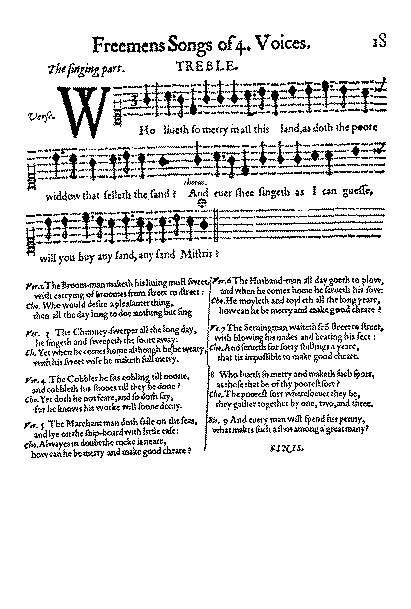 Freemens Songs of 4. Voices. 18
The singing part. TREBLE.
Verse. WHo liueth so merry in all this land, as doth the poore
chorus.
widdow that selleth the sand? And euer shee singeth as I can guesse,
will you buy any sand, any sand Mistris?
Ver. 2 The Broom-man maketh his liuing most sweet,
with carrying of broomes from street to street:
Cho. Who would desire a pleasanter thing,
then all the day long to doe nothing but sing
Ver. 3 The Chimney-sweeper all the long day,
he singeth and sweepeth the soote away:
Ch. Yet when he comes home although he be weary,
with his sweet wife he maketh full merry.
Ver. 4 The Cobbler he sits cobling till noone,
and cobbleth his shooes till they be done?
Cho. Yet doth he not feare, and so doth say,
for he knows his worke will soone decay.
Ver. 5 The Marchant man doth saile on the seas,
and lye on the ship-board with little ease:
Cho. Alwayes in doubt the rocke is neare,
how can he be merry and make good cheare?
Ver. 6 The Husband-man all day goeth to plow,
and when he comes home he serueth his sow:
Cho. He moyleth and toyleth all the long yeare,
how can he be merry and make good cheare?
Ver. 7 The Seruingman waiteth fro street to street,
with blowing his nailes and beating his feet:
Cho. And serueth for forty shillings a yeare,
that tis impossible to make good cheare.
8 Who liueth so merry and maketh such sport,
as those that be of the poorest sort?
Cho. The poorest sort wheresoeuer they be,
they gather together by one, two, and three.
9 And euery man will spend his penny,
what makes such a shot among a great many?
FINIS.